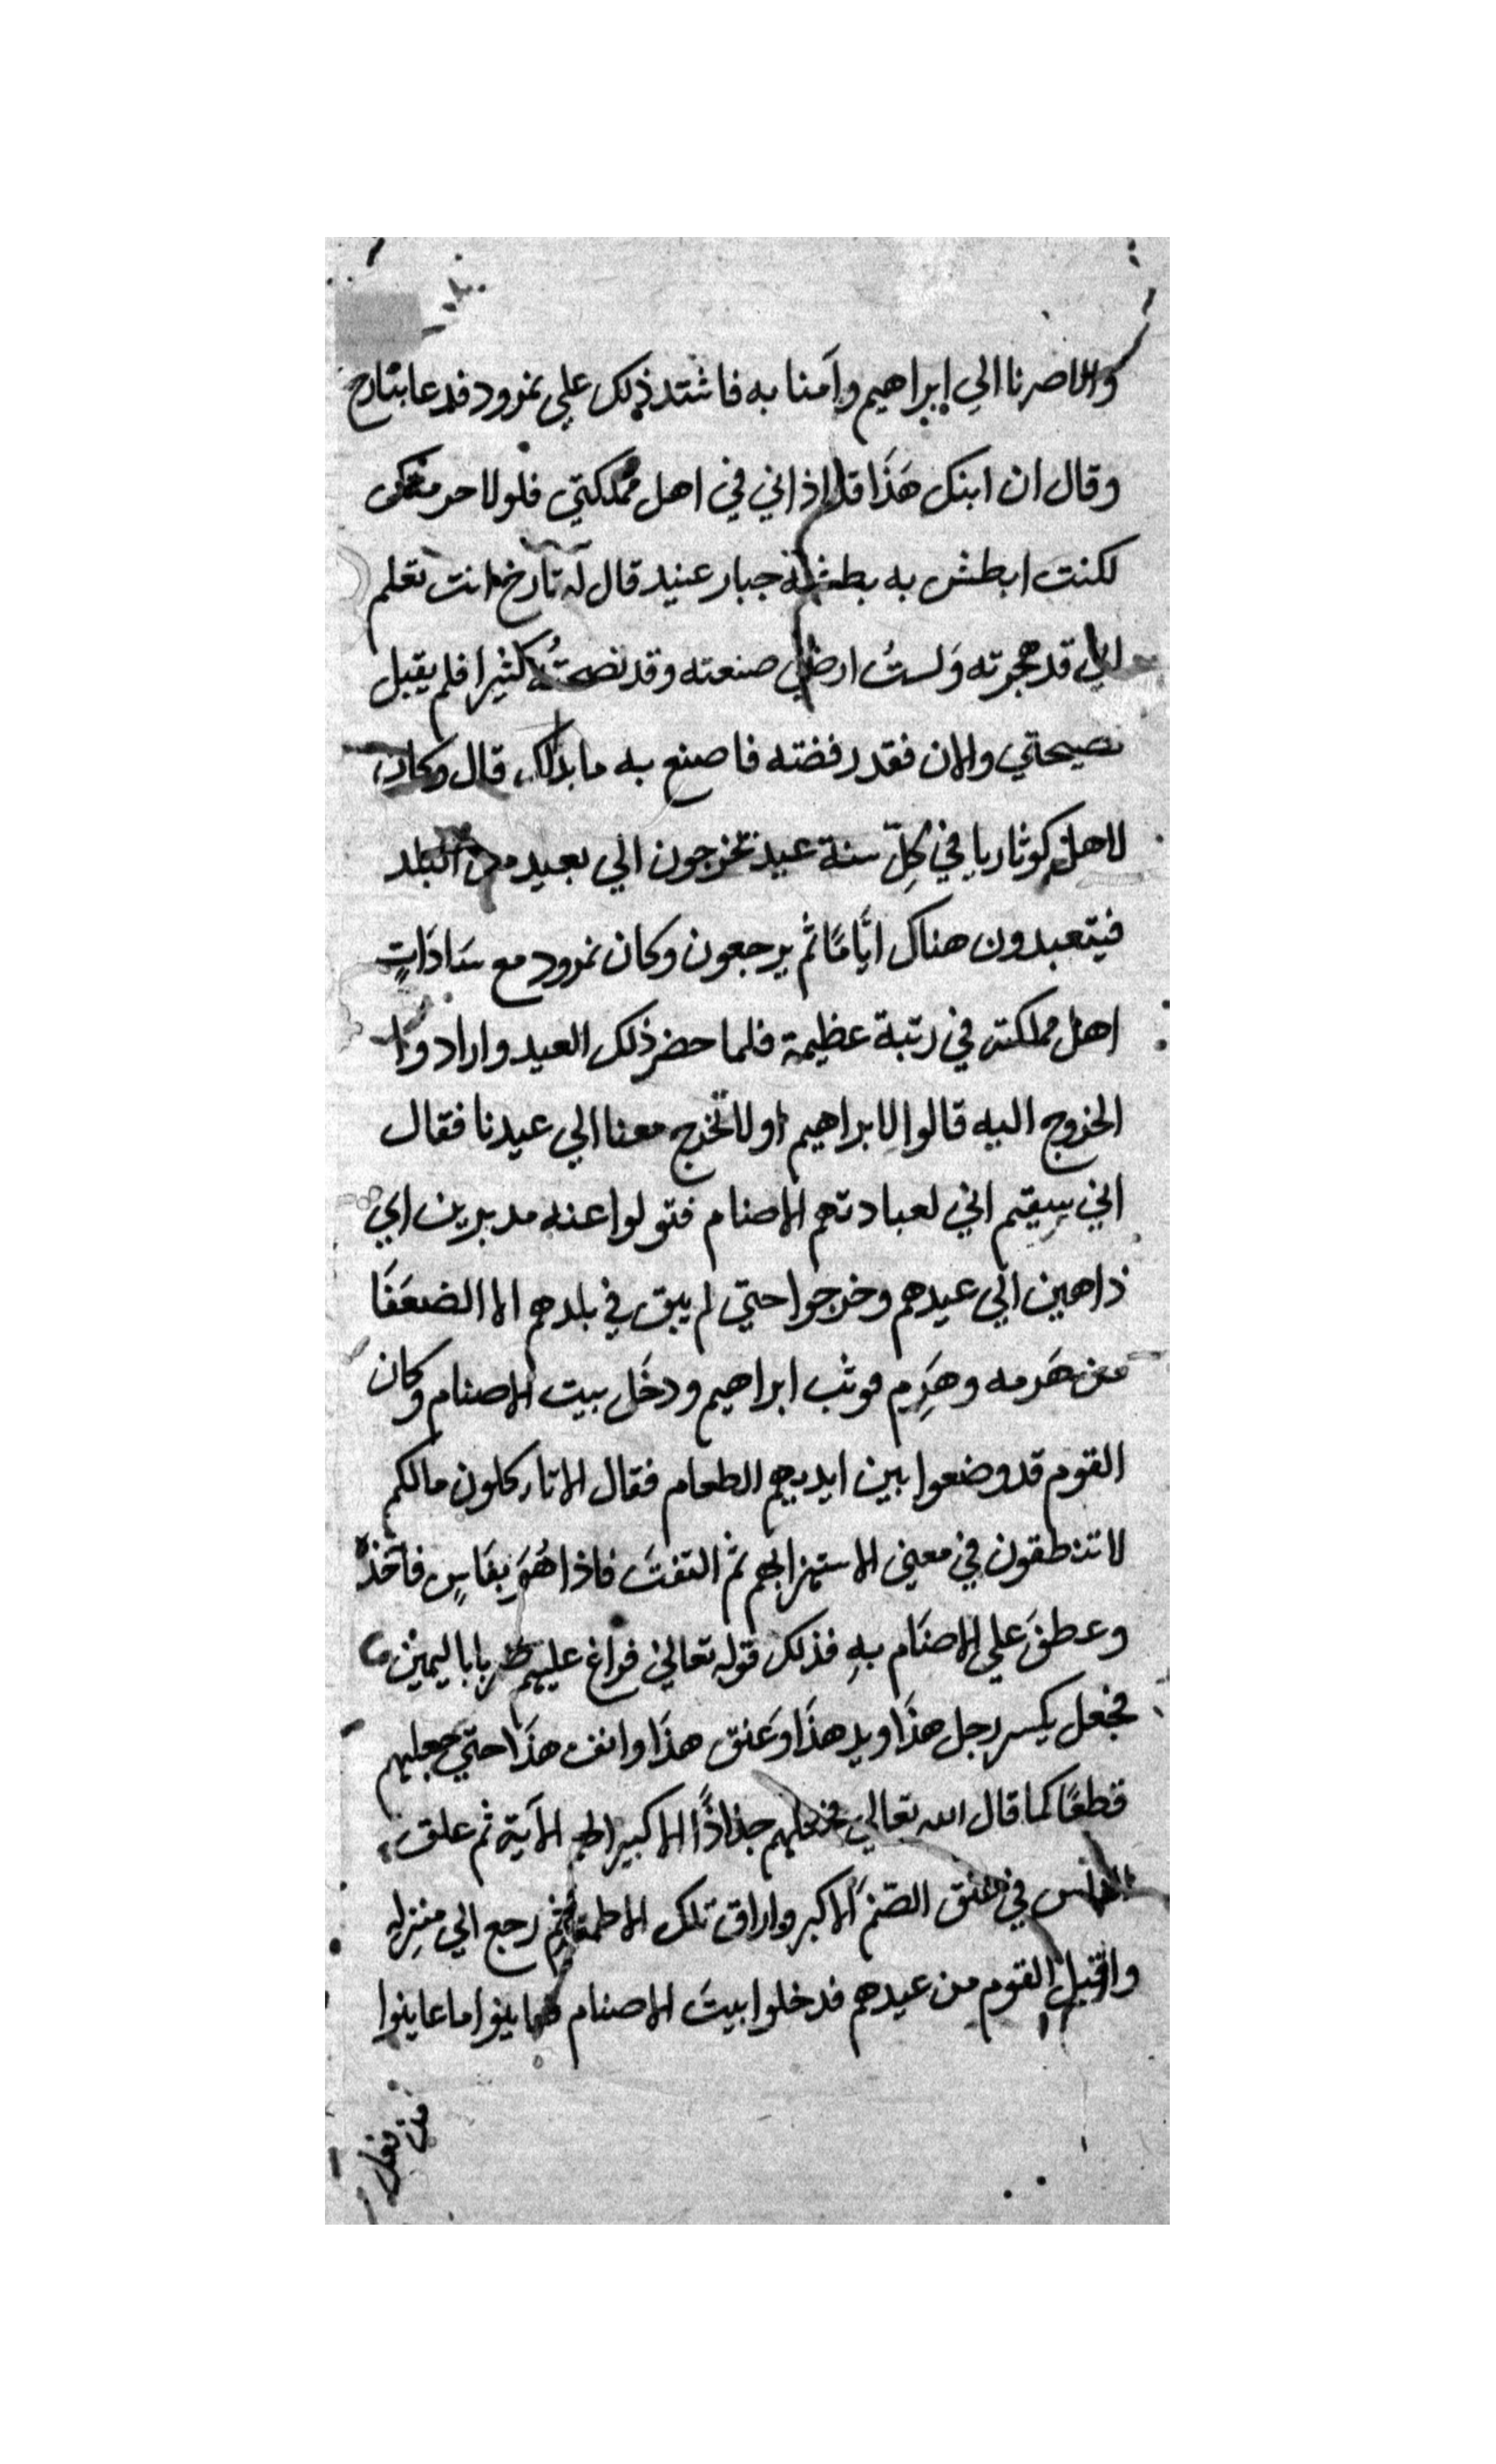 والا صرنا الي إبراهيم وآمنا به فاشتد ذلك علي نمرود فدعا بتارح
وقال ان ابنك هَذَا قد اذاني في اهل مملكتي فلولا حرمتك
لكنت ابطش به بطشة جبار عنيد قال له تارخ انت تعلم
اني قد هجرته وَلستُ ارضي صنعته وقد نصحتُه كثيرا فلم يقبل
نصيحتي والان فقد رفضته فاصنع به ما بدالك قال وكان
لاهل كوثاربا في كِلّ سنة عيد يخرجون الي بعيد من البلد
فيتعبدون هناك ايَّامًا ثم يرجعون وكان نمرود مع سَادَاتٍ
اهل مملكته في رتبة عظيمة فلما حضر ذلك العيد وارادوا
الخروج اليه قالوا لابراهيم اولا تخرج معنا الي عيدنا فقال
اني سقيم اني لعبادتهم الاصنام فتولوا عنه مدبرين اي
ذاهبين الي عيدهم وخرجوا حتي لم يبق في بلدهم الا الضعَفَا
من هَرمه وهَرِم فوثب ابراهيم ودخَل بيت الاصنام وكان
القوم قد وضعوا بين ايديهم الطعام فقال الا تاكلون مالكم
لا تنطقون في معني الاستهزا بهم ثم التفتَ فاذا هُوَ بِفَاسٍ فاَخذه
وعطفَ علي الاصنَام بهِ فذلك قوله تعالي فراغ عليهم ضربا باليمين
فجعل يكسر رجل هذَا ويد هذَا وَعَنق هذَا وانف هذَا حتي جعلهم
قطعًا كما قال الله تعالي فجعلهم جذاذًا الا كبيرا لهم الآية ثم علق
الفاس في عنق الصّنمَ الاكبر واراق تلك الاطعمة ثم رجع الي منزِله
واقبل القوم من عيدهم فدخلوا بيتَ الاصنام فعاينوا ما عاينوا
من فعل